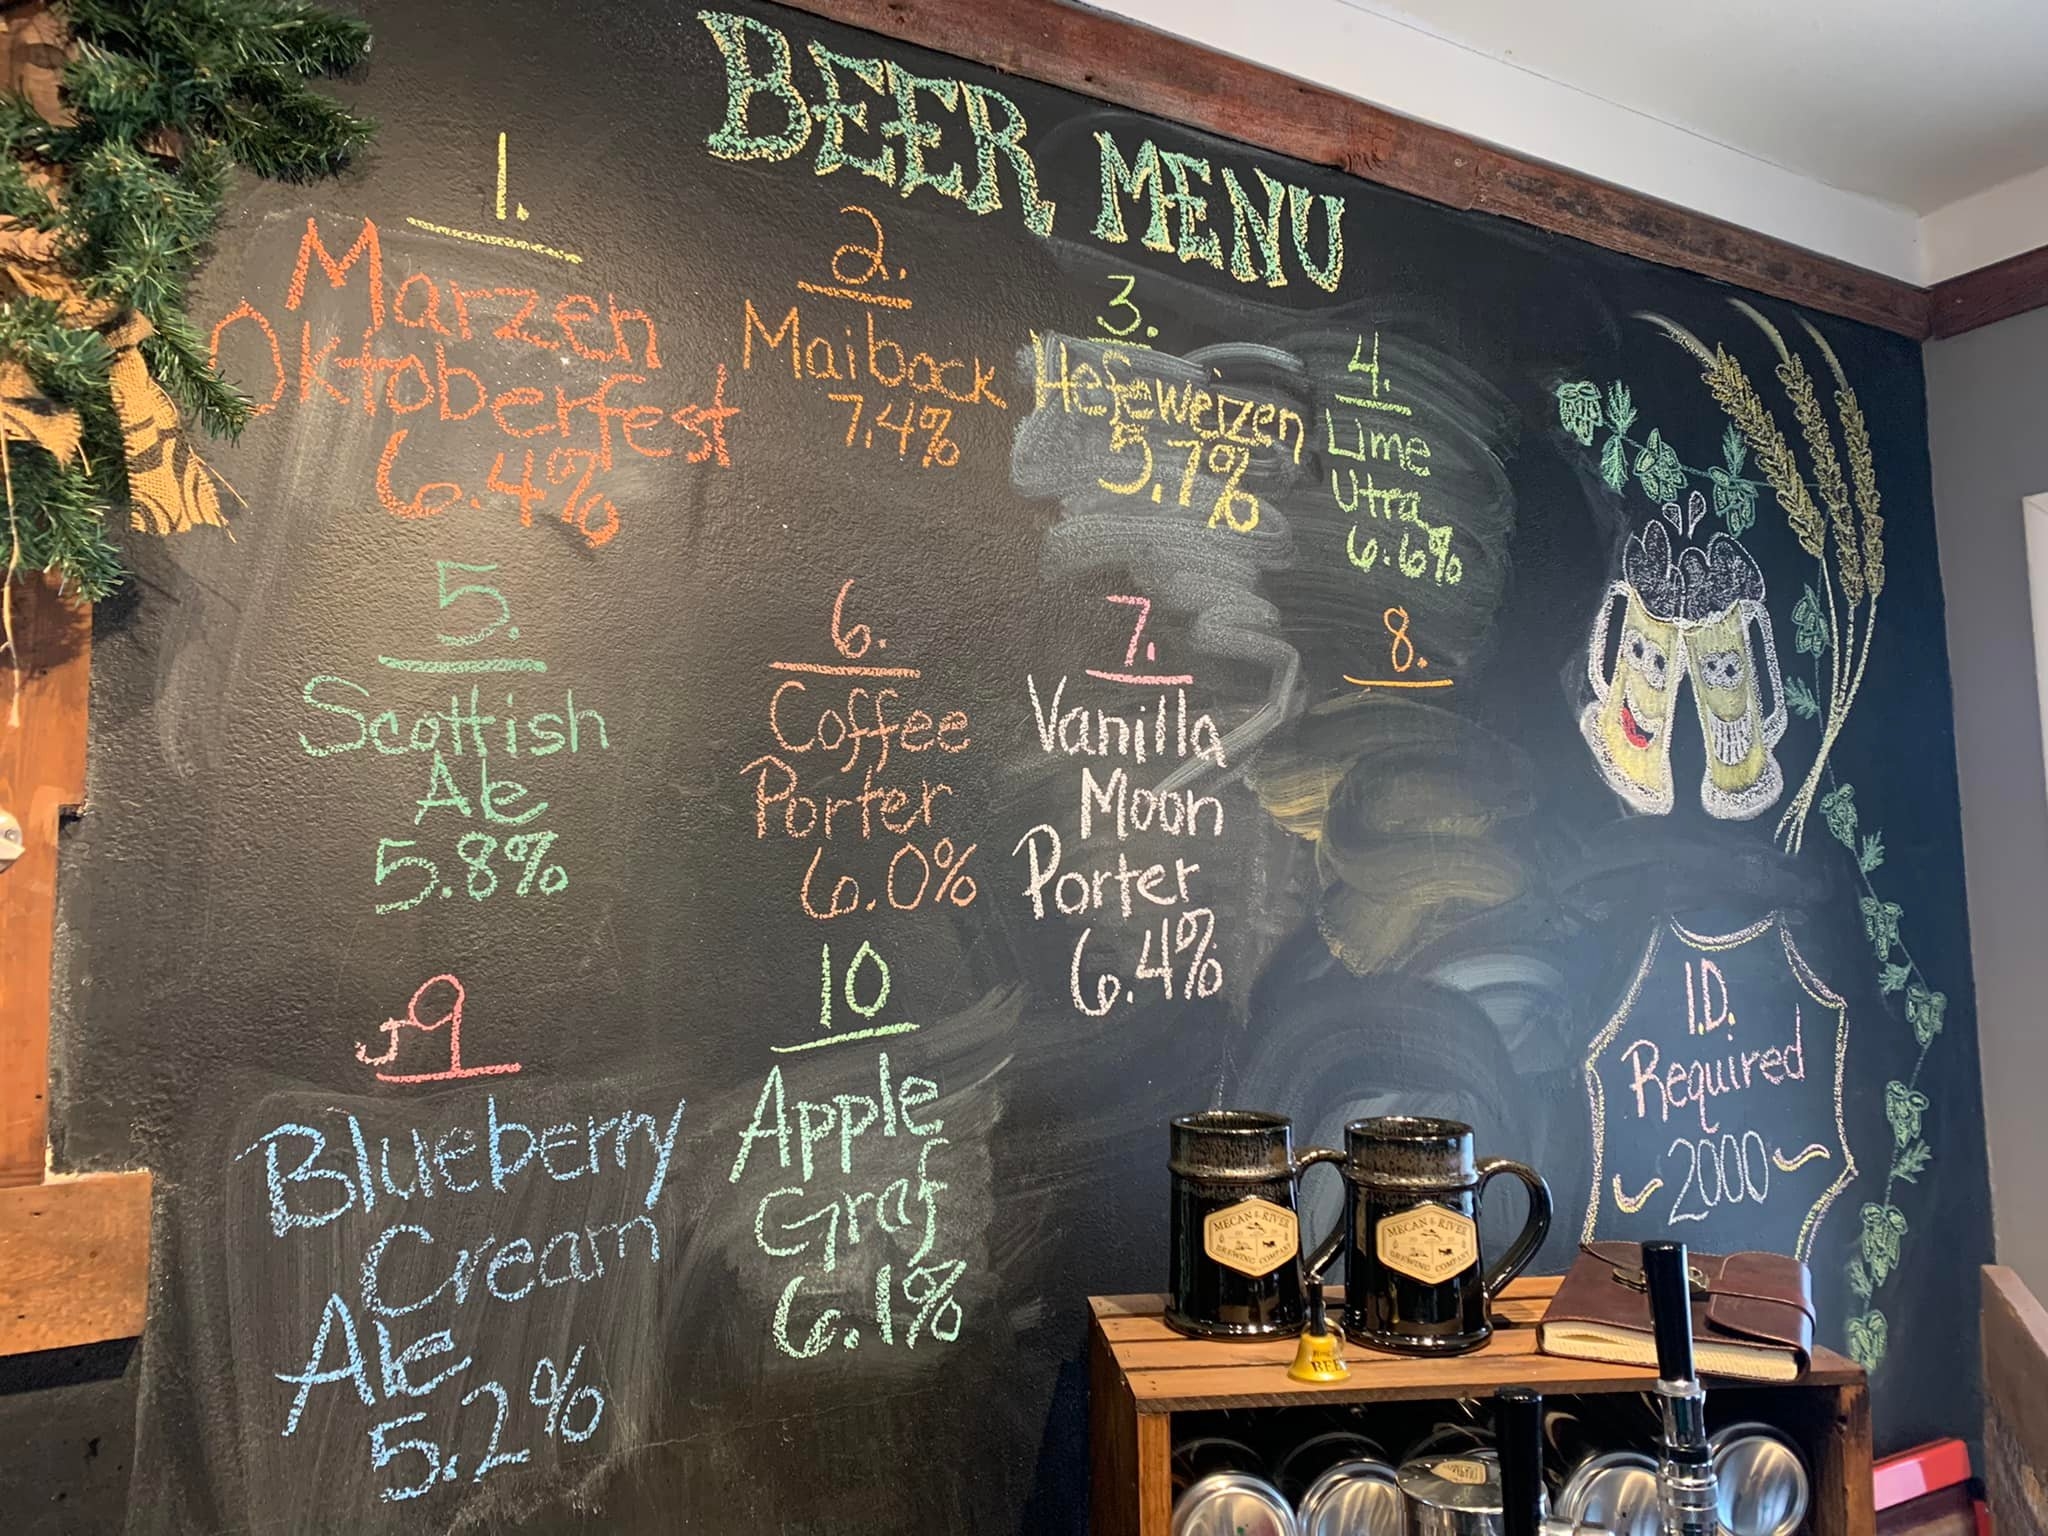 BEER MENU
1.
Marzen
Oktoberfest
6.4%
2.
Maiback
7.4%
3.
Hefeweizen
5.7%
4.
Lime
Utra
6.6%
5.
Scottish
Ale
5.8%
6.
Coffee
Porter
6.0%
7.
Vanilla
Moon
Porter
6.4%
8.
9
Blueberry
Cream
Ale
5.2%
10
Apple
Graf
6.1%
I.D.
Required
2000
MECAN RIVER
BREWING COMPANY
MECAN RIVER
BREWING COMPANY
BEER